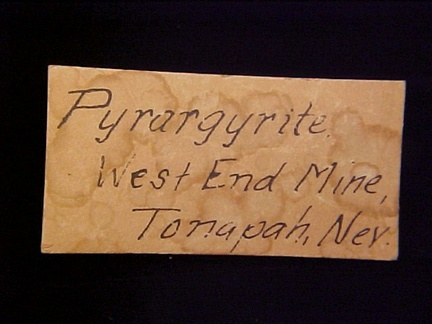 Pyrargyrite.
West End Mine,
Tonapah, Nev.